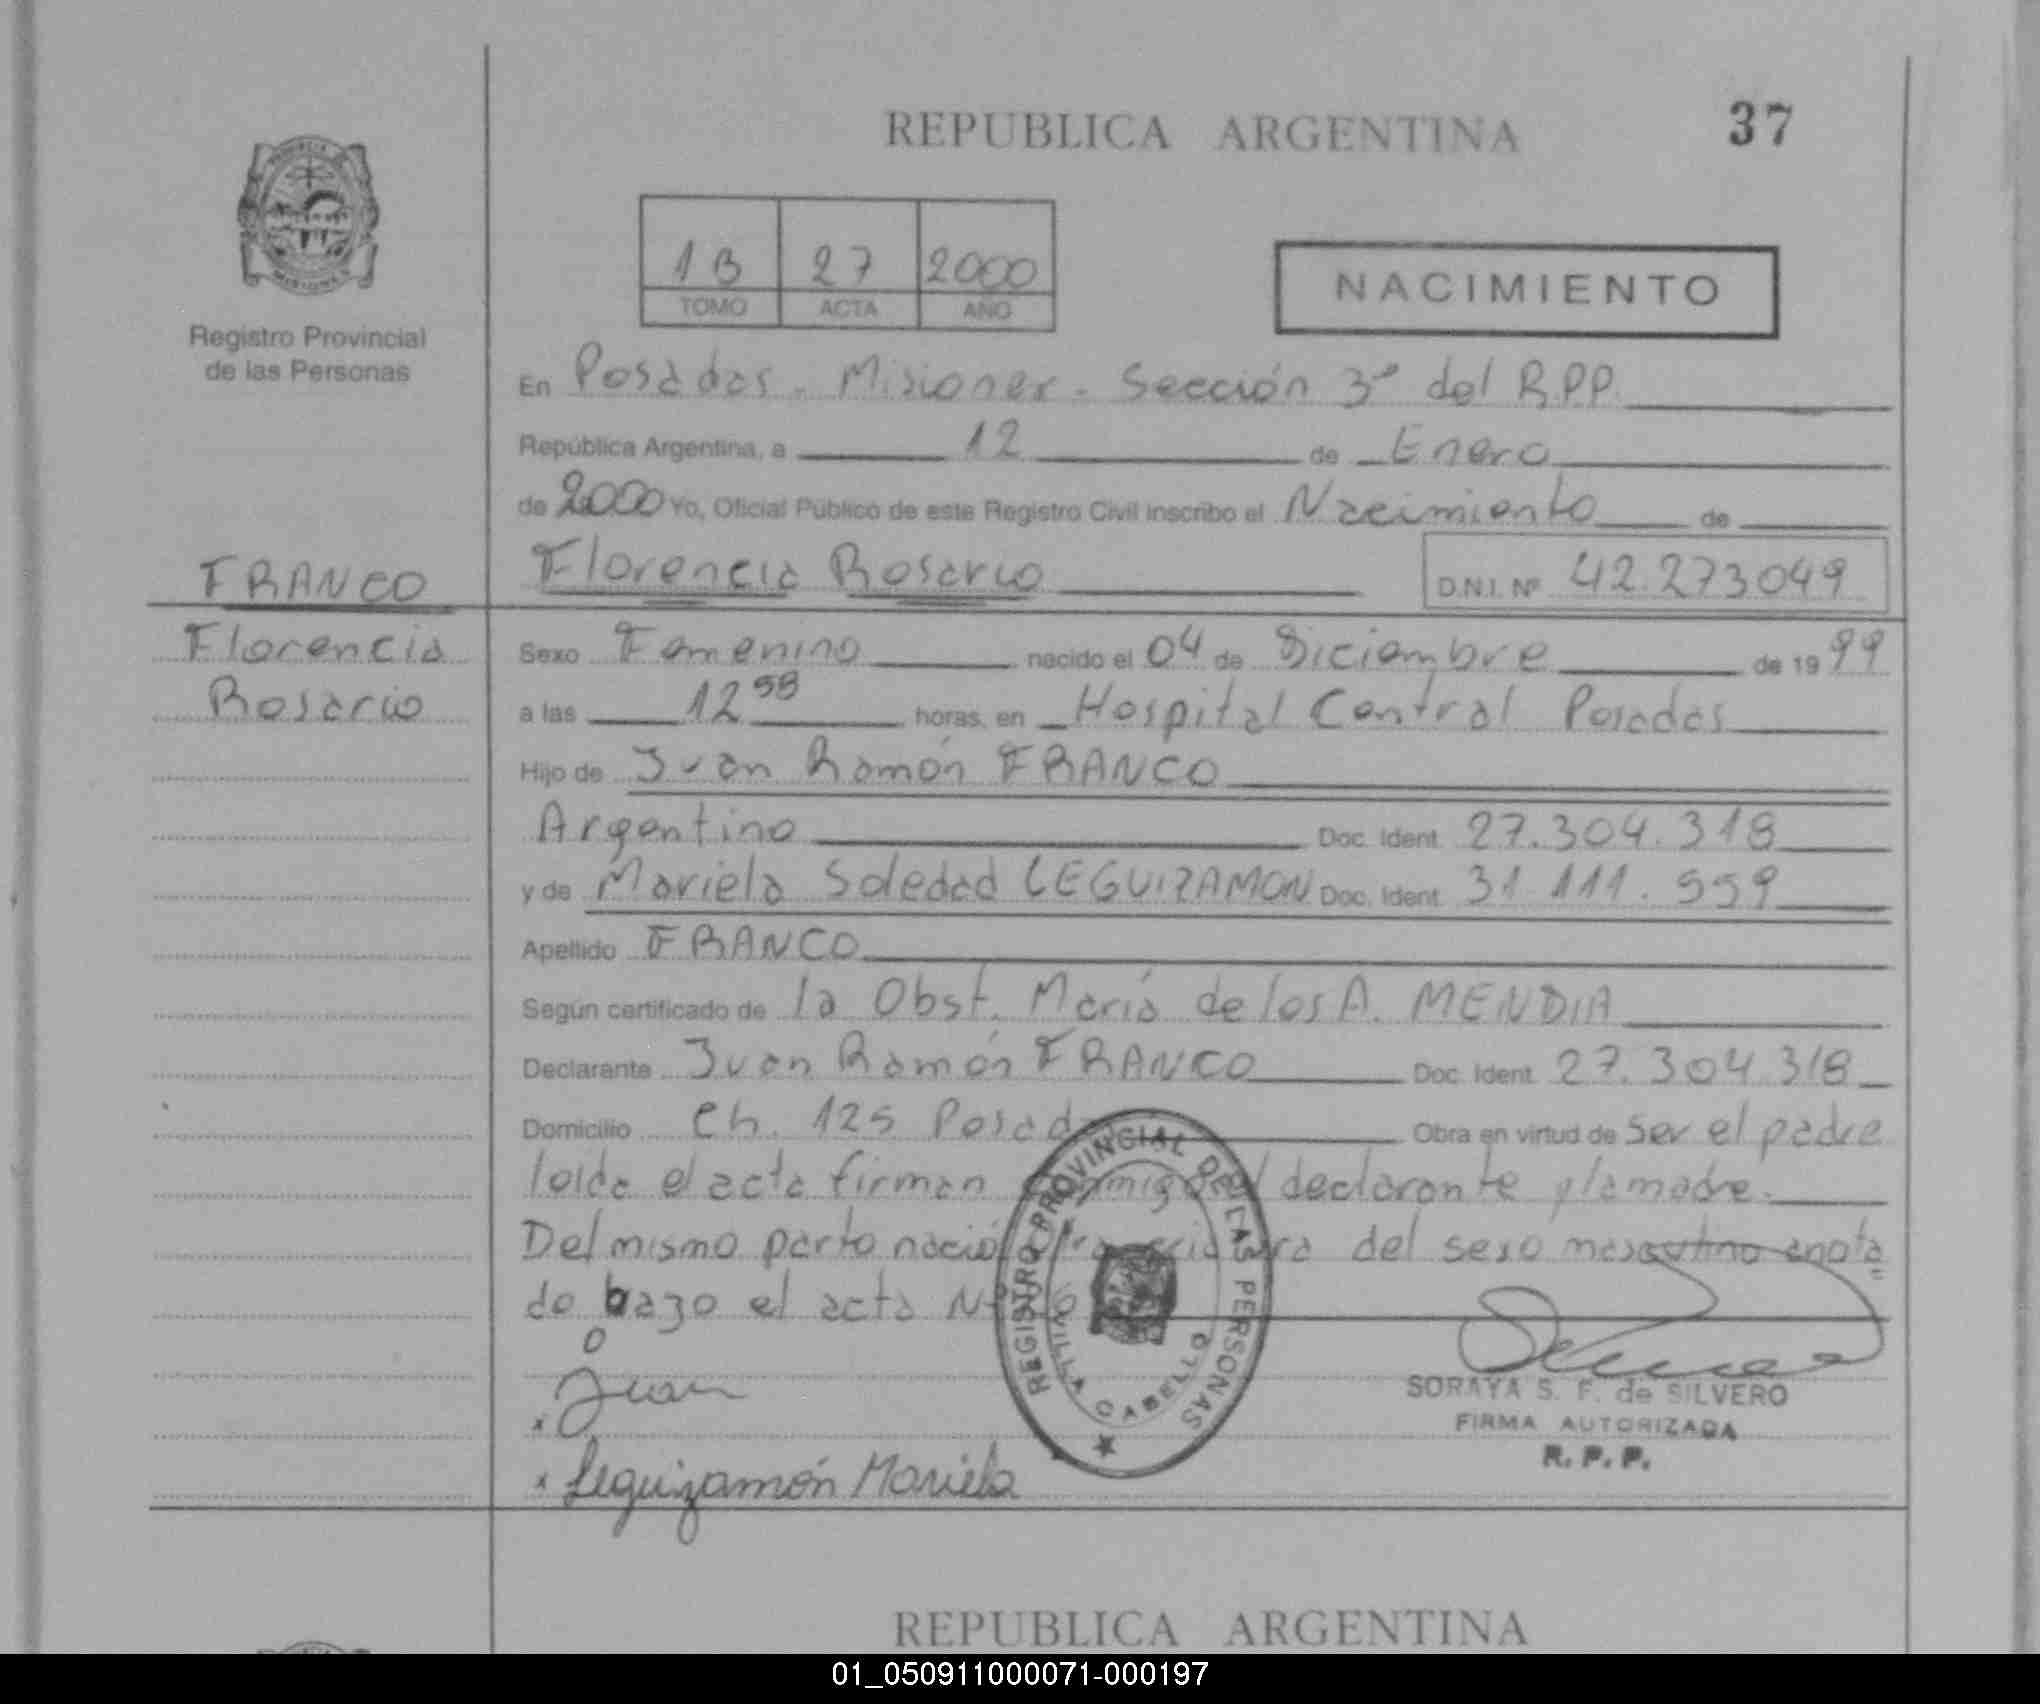 REPUBLICA ARGENTINA
37
Registro Provincial
de las Personas
1B 27 2000
TOMO ACTA AÑO
NACIMIENTO
En Posadas - Misiones - Sección 3ª del R.P.P.
República Argentina, a 12 de Enero
de 2000 Yo, Oficial Público de este Registro Civil inscribo el Nacimiento de
Florencia Rosario D.N.I. Nº 42.273049
FRANCO
Florencia
Rosario
Sexo Femenino nacido el 04 de Diciembre de 1999
a las 12 58 horas, en Hospital Central Posadas
Hijo de Juan Ramón FRANCO
Argentino Doc. Ident. 27.304.318
y de Mariela Soledad LEGUIZAMON Doc. Ident. 31.111.559
Apellido FRANCO
Según certificado de la Obst. María de los A. MENDIA
Declarante Juan Ramón FRANCO Doc. Ident. 27.304.318
Domicilio Ch. 125 Posadas Obra en virtud de ser el padre
leida el acta firman conmigo el declarante y la madre.
Del mismo parto nació otra criatura del sexo masculino anota
do bajo el acta Nº
REGISTRO PROVINCIAL DE LAS PERSONAS
VILLA CABELLO
Juan
Leguizamón Mariela
SORAYA S. F. de SILVERO
FIRMA AUTORIZADA
R. P. P.
REPUBLICA ARGENTINA
01_050911000071-000197